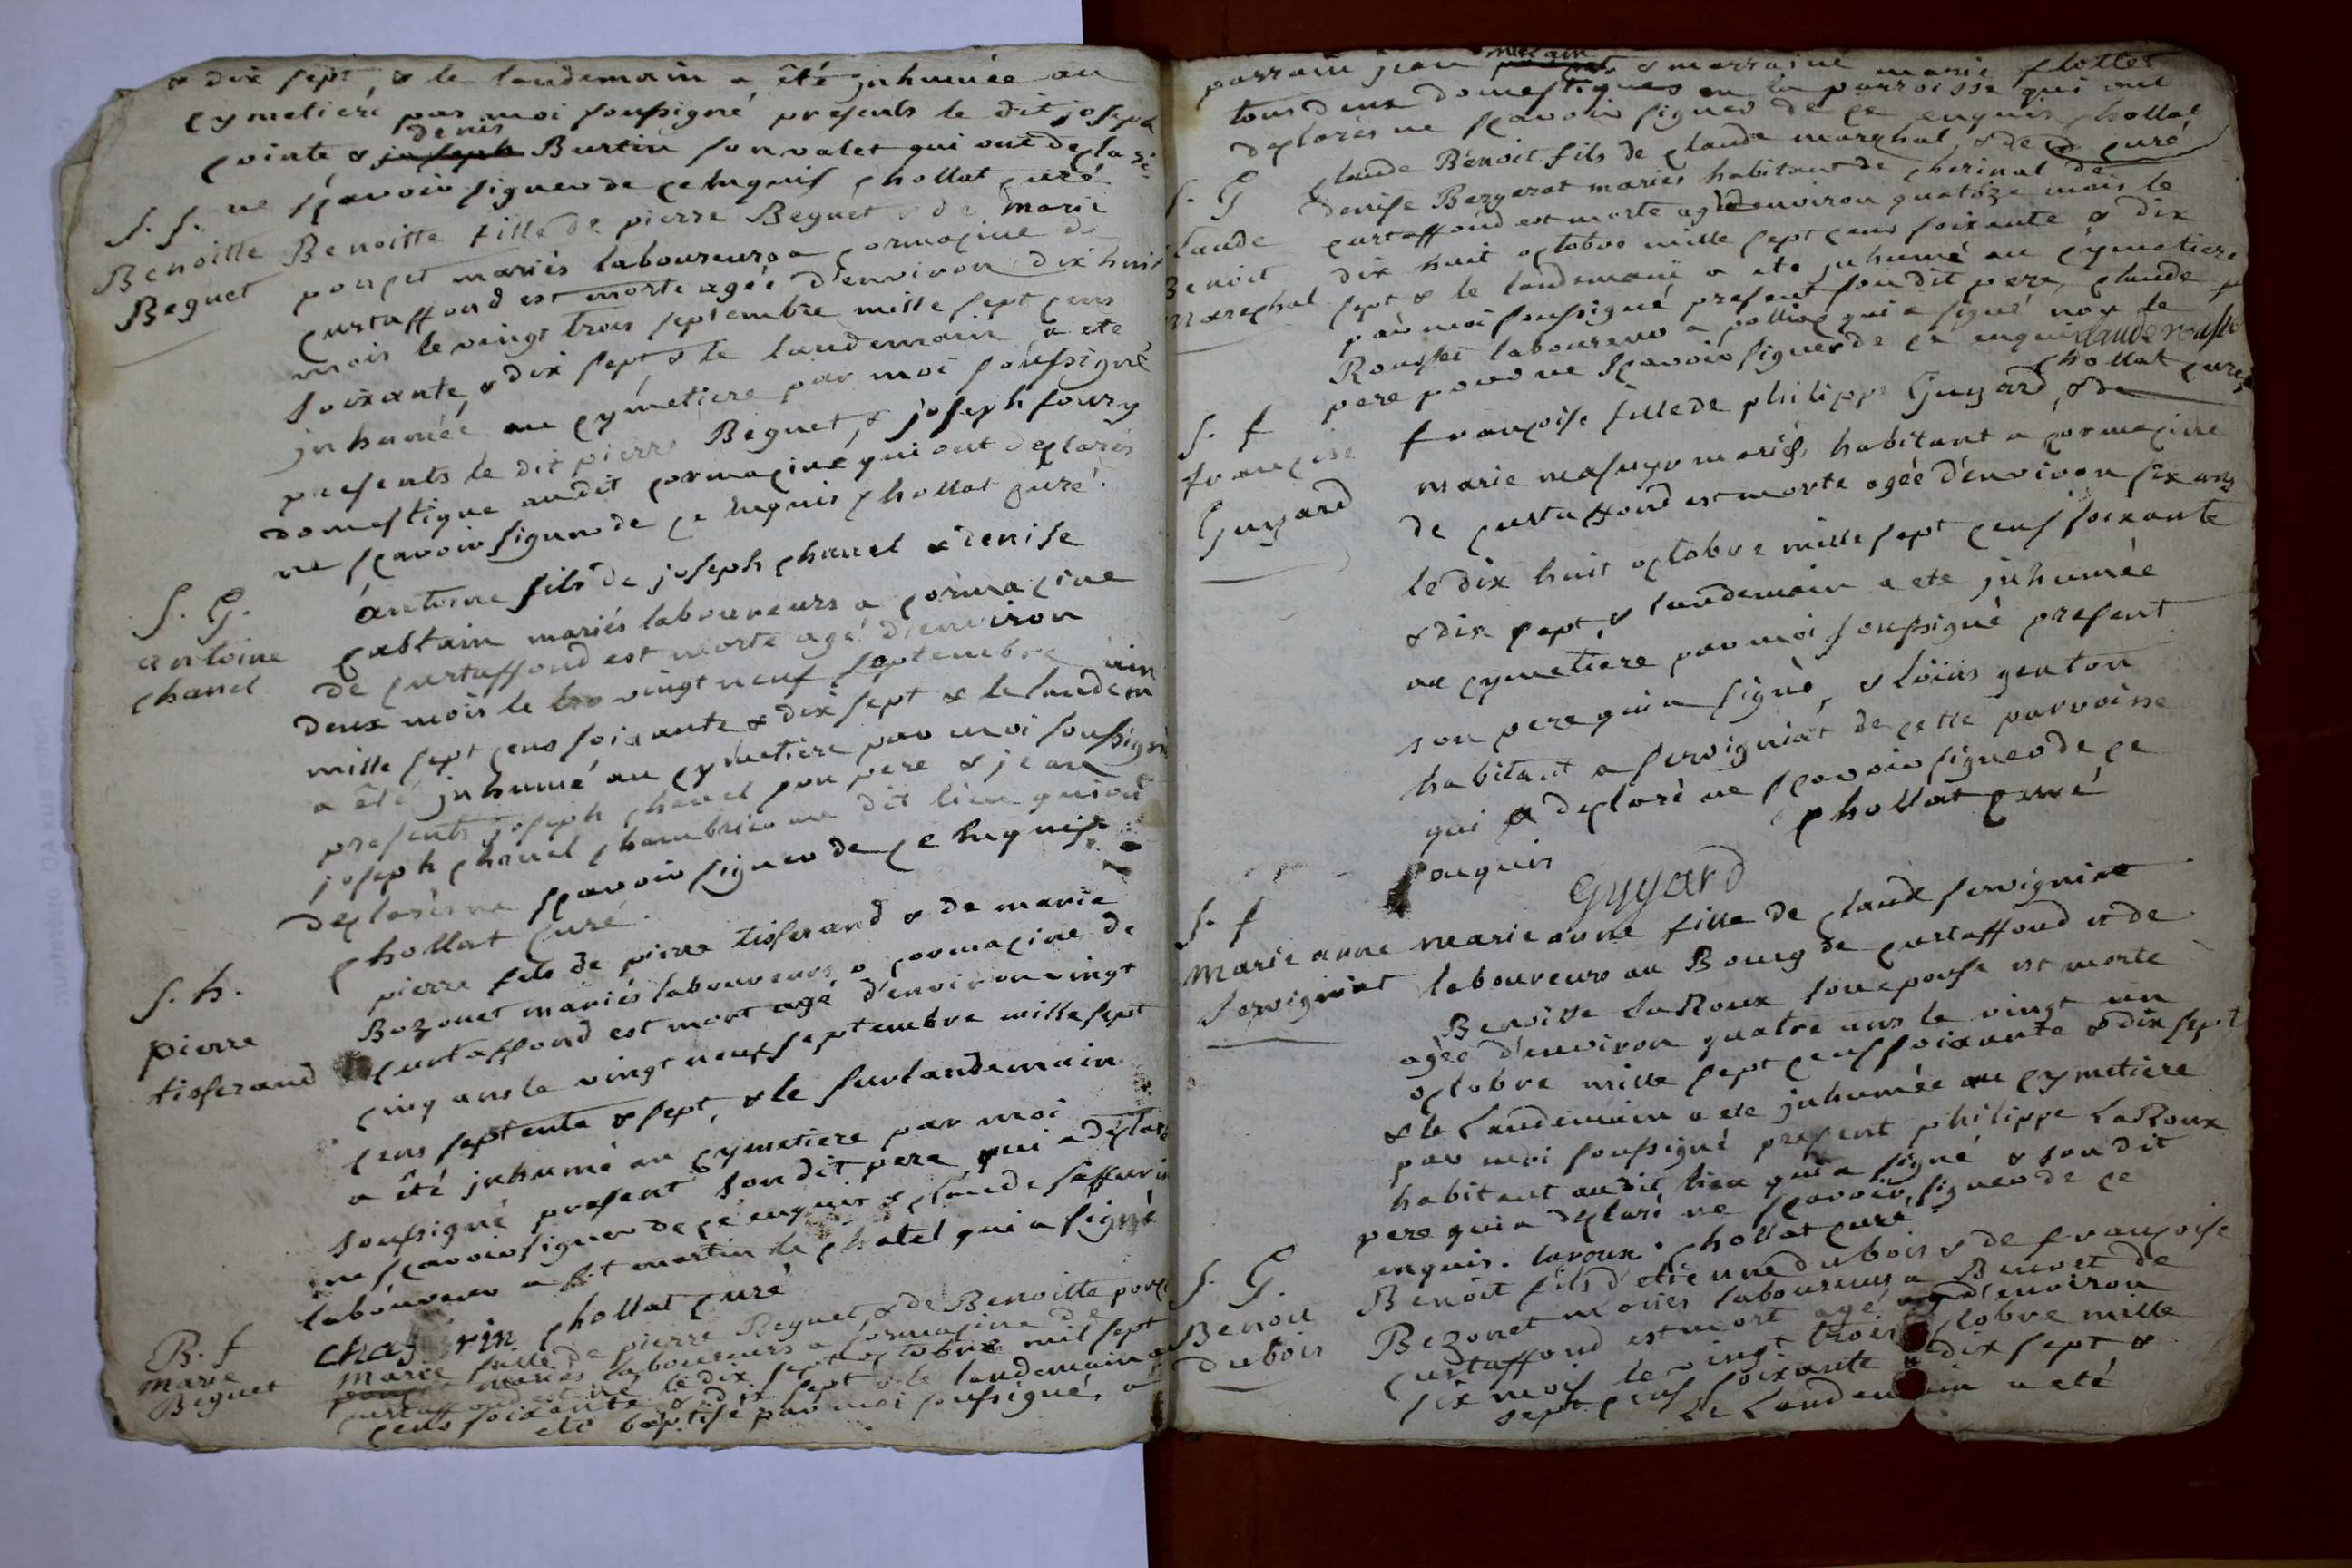 & dix sept, & le landemain a été inhumée au
cymetiere par moi soussigné, presents le dit joseph
denis
pointe & joseph Burtin son valet qui ont declarés
S. f. ne sçavoir signer de ce enquis chollat curé
Benoitte Benoitte fille de pierre Beguet & de marie
Beguet ponçet mariés laboureurs a cormaçine de
curtaffond est morte agée d'environ dix huit
mois le vingt trois septembre mille sept cens
soixante & dix sept & le landemain a ete
inhumée au cymetiere par moi soussigné
presents le dit pierre Beguet, & joseph foury
domestique audit cormaçine qui ont declarés
ne sçavoir signer de ce enquis chollat curé.
S. G. antoine fils de joseph chanel & denise
antoine cablain mariés laboureurs a cormaçine
chanel de curtaffond est morte agé d'environ
deux mois le vingt neuf septembre
mille sept cens soixante & dix sept & le landemain
a été inhumé au cymetiere par moi soussigné
presents joseph chanel son pere & jean
joseph chanel chambrier au dit lieu qui ont
declarés ne sçavoir signer de ce enquis
chollat curé.
S. h. pierre fils de pierre tisserand & de marie
pierre Bozonet mariés laboureurs a cormaçine de
tisserand curtaffond est mort agé d'environ vingt
cinq ans le vingt neuf septembre mille sept
cens septente & sept, & le surlandemain
a été inhumé au cymetiere par moi
soussigné present son dit pere qui a declaré
ne sçavoir signer de ce enquis & claude
laboureur a st martin le chatel qui a signé
chollat curé
B. f marie fille de pierre Beguet & de Benoitte
marie mariés laboureurs a cormaçine de
Beguet curtaffond est né le dix sept octobre mil sept
cens soixante & dix sept & le landemain a
ete baptisé par moi soussigné, a
parrain jean & marraine marie flottet
tous deux domestiques en la parroisse qui ont
declarés ne sçavoir signer de ce enquis chollat
curé
S. G claude Benoit fils de claude marechal & de
claude denise Bergerat mariés habitant de cherinal de
Benoit curtaffond est morte agé d'environ quatoze mois le
marechal dix huit octobre mille sept cens soixante & dix
sept & le landemain a ete inhumé au cymetiere
par moi soussigné present son dit pere, claude
Rousset laboureur a polliac qui a signé non le
pere pour ne sçavoir signer de ce enquis claude rousset
chollat curé
S. f françoise fille de philippe Guyard, & de
françoise marie mariés habitant a cormaçine
Guyard de curtaffond est morte agée d'environ six ans
le dix huit octobre mille sept cens soixante
& dix sept & landemain a ete inhumée
au cymetiere par moi soussigné present
son pere qui a signé, & loüis genton
habitant a servigniat de cette parroisse
qui a declaré ne sçavoir signer de ce
enquis chollat curé
Guyard
S. f
marie anne marie anne fille de claude servigniat
servigniat laboureur au Bourg de curtaffond & de
Benoitte LaRoux son epouse est morte
agée d'environ quatre ans le vingt un
octobre mille sept cens soixante & dix sept
& le Landemain a ete inhumée au cymetiere
par moi soussigné present philippe LaRoux
habitant audit lieu qui a signé & son dit
pere qui a declaré ne sçavoir signer de ce
enquis. laroux. chollat curé
S. G. Benoit fils d'etienne dubois & de françoise
Benoit Bezonet mariés laboureurs a Benoet de
dubois curtaffond est mort agé d'environ
six mois le vingt trois octobre mille
sept cens soixante & dix sept &
Le Landemain a eté